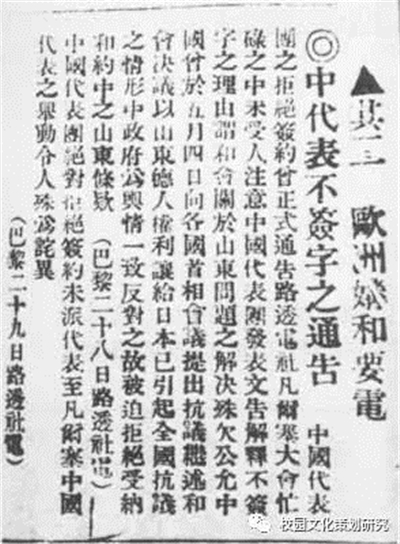 ▲其三　歐洲媾和要電
◎中代表不簽字之通告　中國代表
團之拒絕簽約曾正式通告路透電社凡爾塞大會忙
碌之中未受人注意中國代表團發表文告解釋不簽
字之理由謂和會關於山東問題之解决殊欠公允中
國曾於五月四日向各國首相會議提出抗議繼述和
會决議以山東德人權利讓給日本已引起全國抗議
之情形中政府爲輿情一致反對之故被迫拒絕受納
和約中之山東條欵　（巴黎二十八日路透社電）
中國代表團絕對拒絕簽約未派代表至凡爾塞中國
代表之舉動令人殊爲詫異
（巴黎二十九日路透社電）
校园文化策划研究